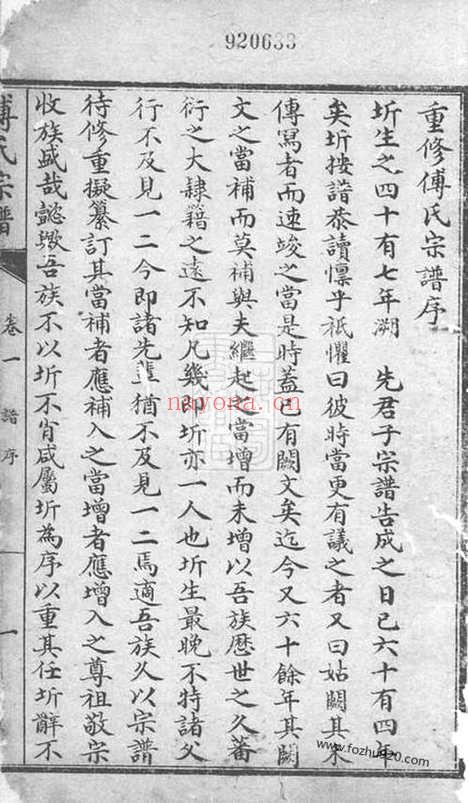 920633
重修傅氏宗譜序
圻生之四十有七年溯 先君子宗譜告成之日已六十有四年
矣圻按譜恭讀懍乎祇懼曰彼時當更有議之者又曰姑闕其未
傳寫者而速竣之當是時蓋已有闕文矣迄今又六十餘年其闕
文之當補而莫補與夫繼起之當增而未增以吾族歷世之久蕃
衍之大隸籍之遠不知凡幾即圻亦一人也圻生最晚不特諸父
行不及見一二今即諸先輩猶不及見一二焉適吾族久以宗譜
待修重擬纂訂其當補者應補入之當增者應增入之尊祖敬宗
收族盛哉懿歟吾族不以圻不肖咸屬圻為序以重其任圻辭不
傅氏宗譜
卷一
譜序
一
nayona.cn
www.fozhu920.com